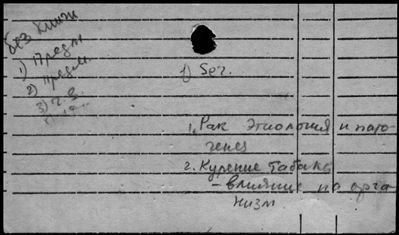 без книги
1) Предм.
2) предм.
3)
1) Ser.
1. Рак Этиология и пато-
генез
2. Курение табака
- влияние на орга-
низм